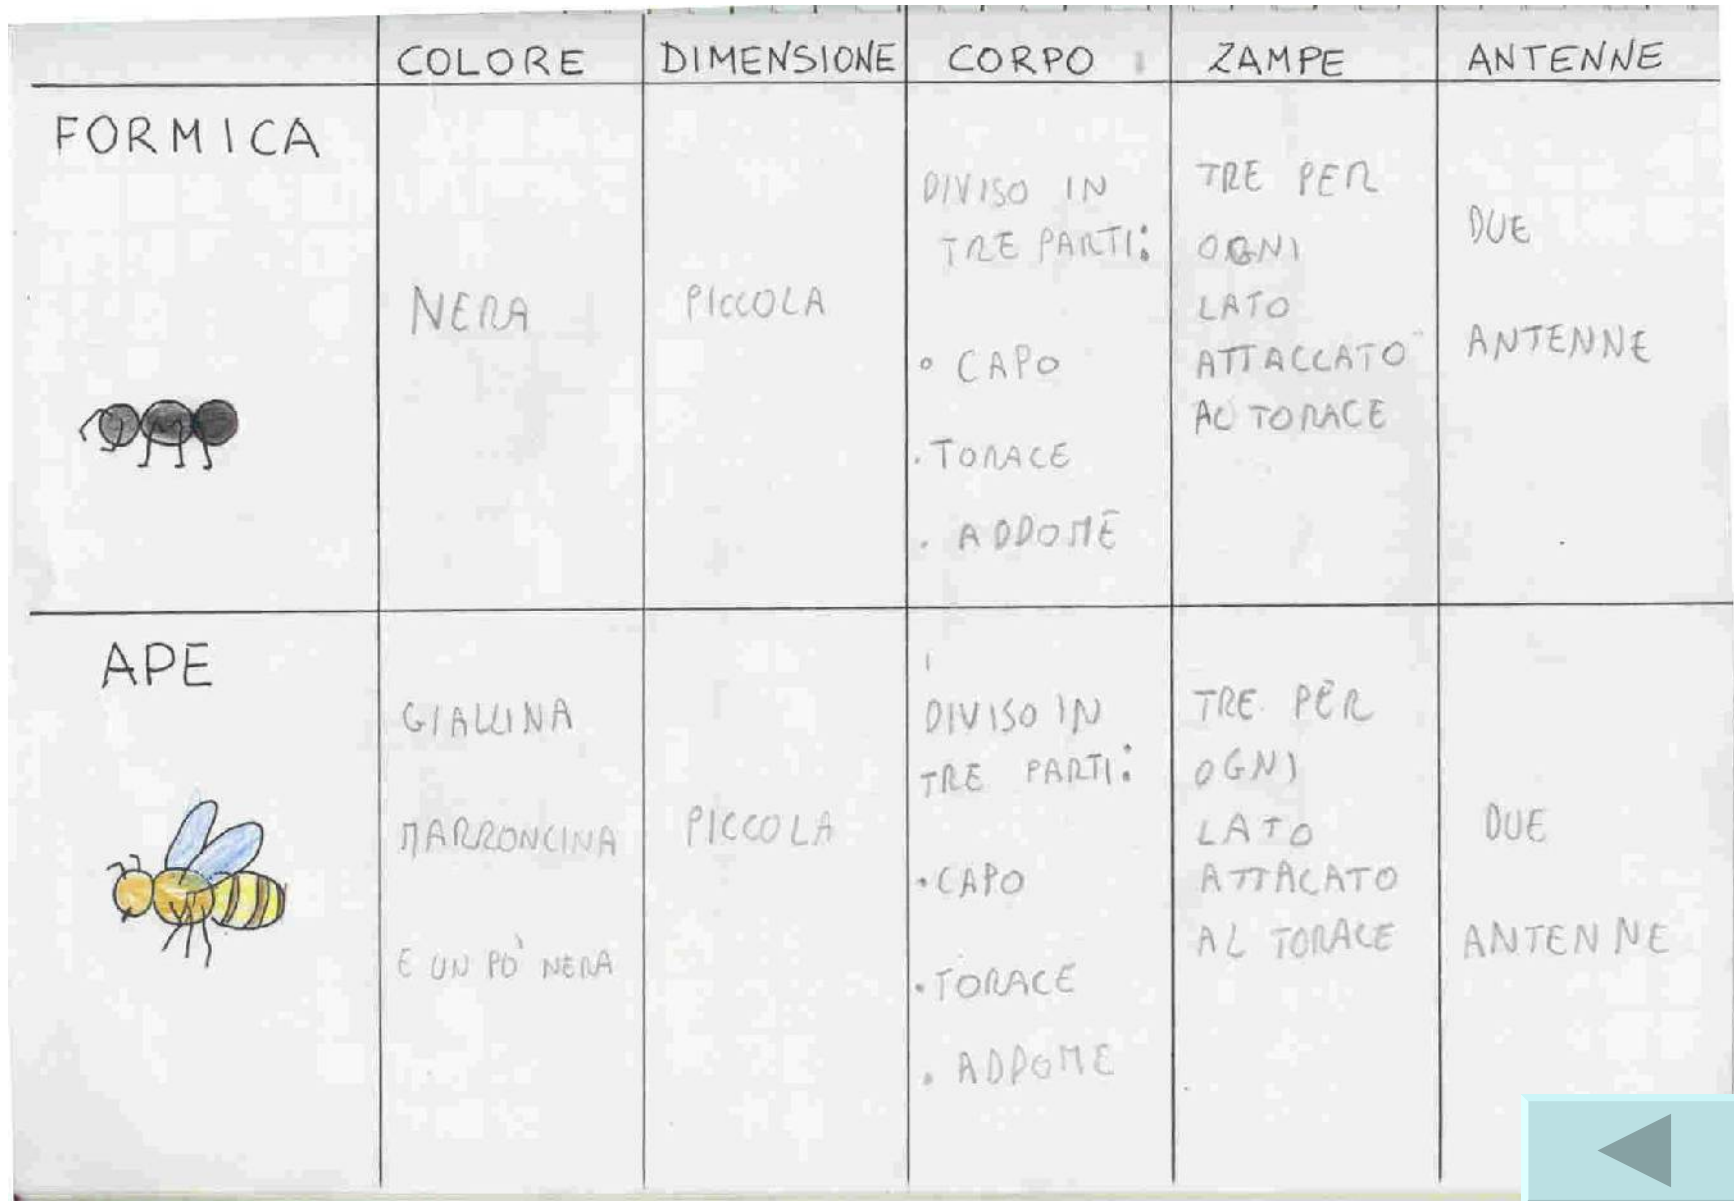 COLORE DIMENSIONE CORPO ZAMPE ANTENNE
FORMICA
NERA
PICCOLA
DIVISO IN
TRE PARTI:
• CAPO
• TORACE
• ADDOME
TRE PER
OGNI
LATO
ATTACCATO
AL TORACE
DUE
ANTENNE
APE
GIALLINA
MARRONCINA
E UN PÒ NERA
PICCOLA
DIVISO IN
TRE PARTI:
• CAPO
• TORACE
• ADDOME
TRE PER
OGNI
LATO
ATTACATO
AL TORACE
DUE
ANTENNE